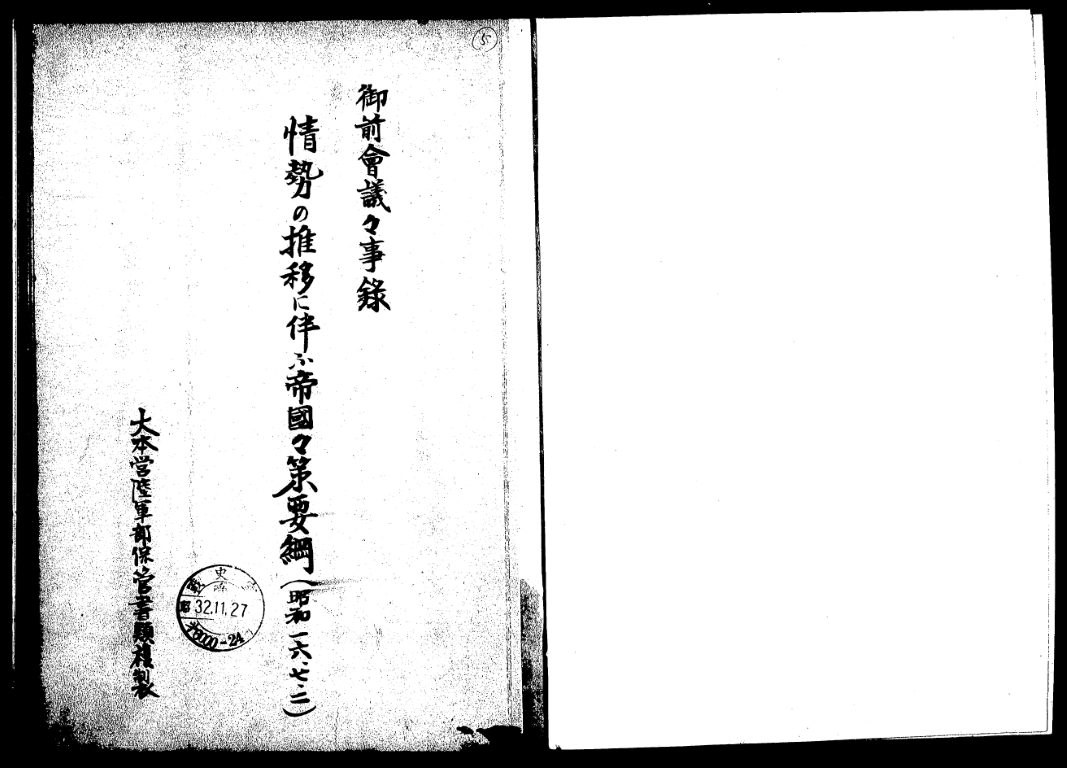 5
御前會議々事錄
情勢の推移に伴ふ帝國々策要綱(昭和一六、七、二)
大本営陸軍部保管書類複製
史
32.11.27